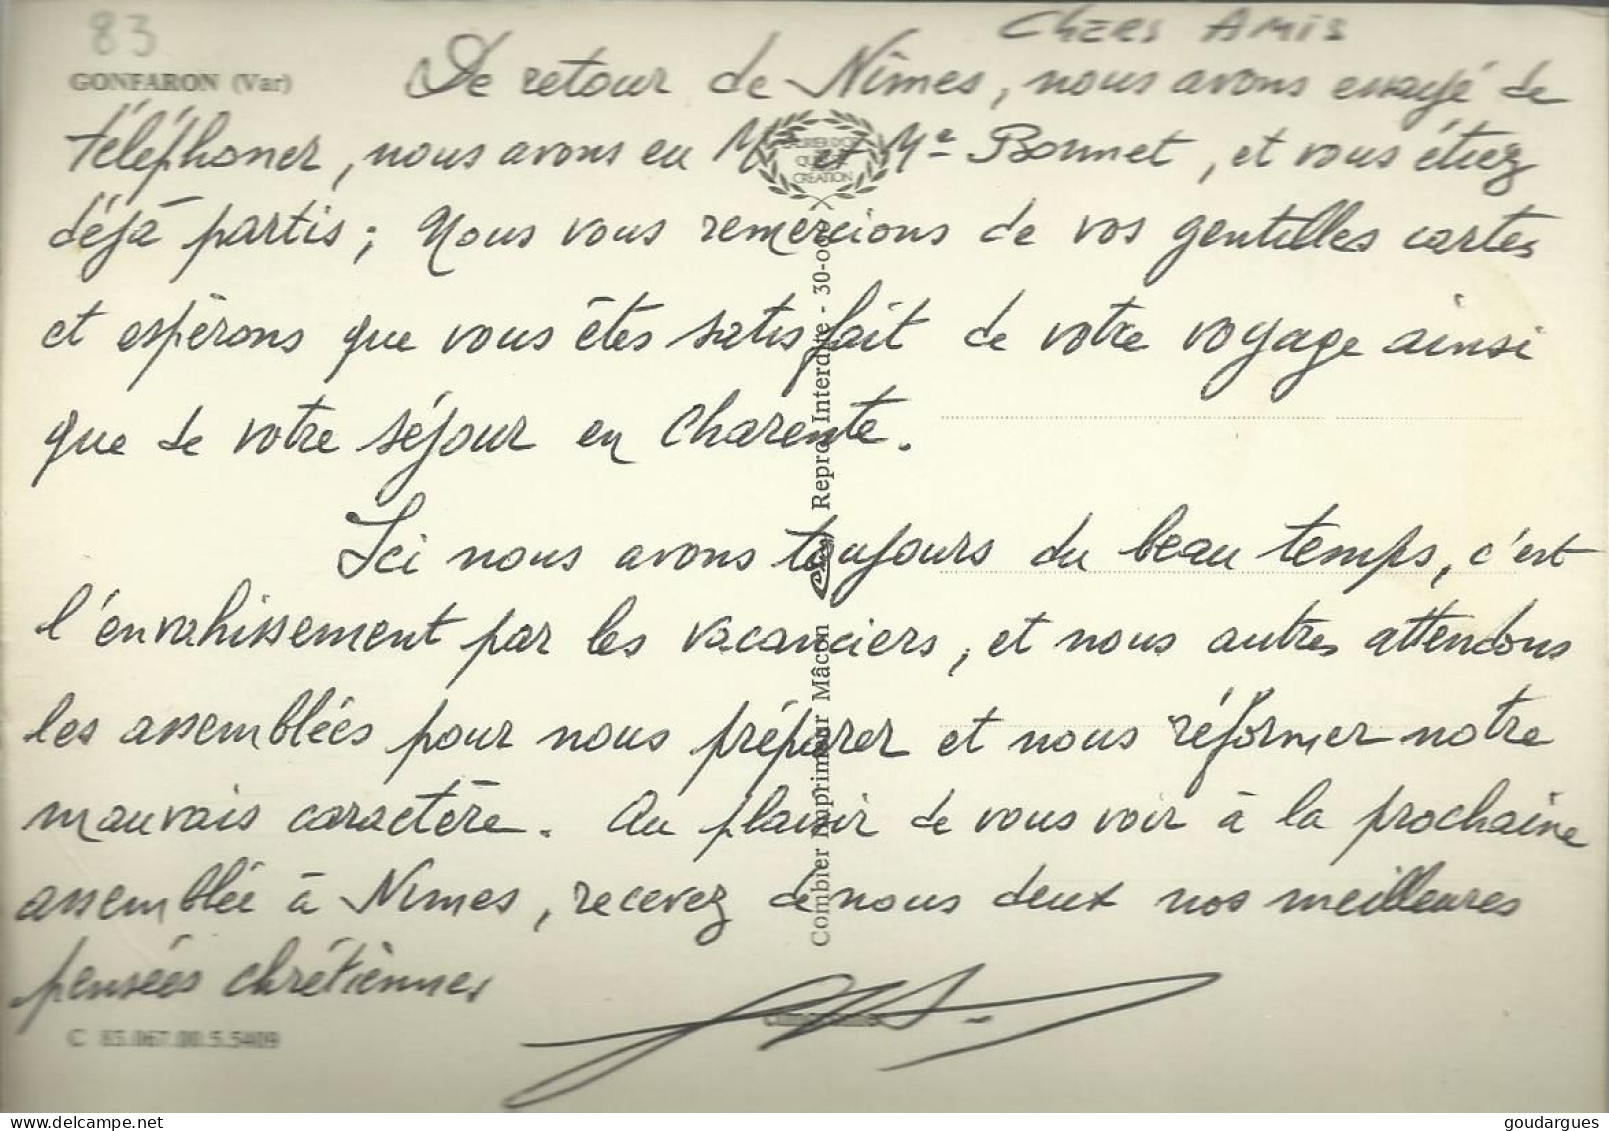 83
Chers Amis
GONFARON (Var)
De retour de Nîmes, nous avons essayé de
téléphoner, nous avons eu Mr et Me Bonnet, et vous étiez
déjà partis; Nous vous remercions de vos gentilles cartes
et espèrons que vous êtes satisfait de votre voyage ainsi
que de votre séjour en Charente.
Ici nous avons toujours du beau temps, c'est
l'envahissement par les vacanciers, et nous autres attendons
les assemblées pour nous préparer et nous réformer notre
mauvais caractère. Au plaisir de vous voir à la prochaine
assemblée à Nîmes, recevez de nous deux nos meilleures
pensées chrétiènnes
C 83.067.00.5.5409
Combier Imprimeur Mâcon
Repro. Interdite - 30-
CREATION
goudargues